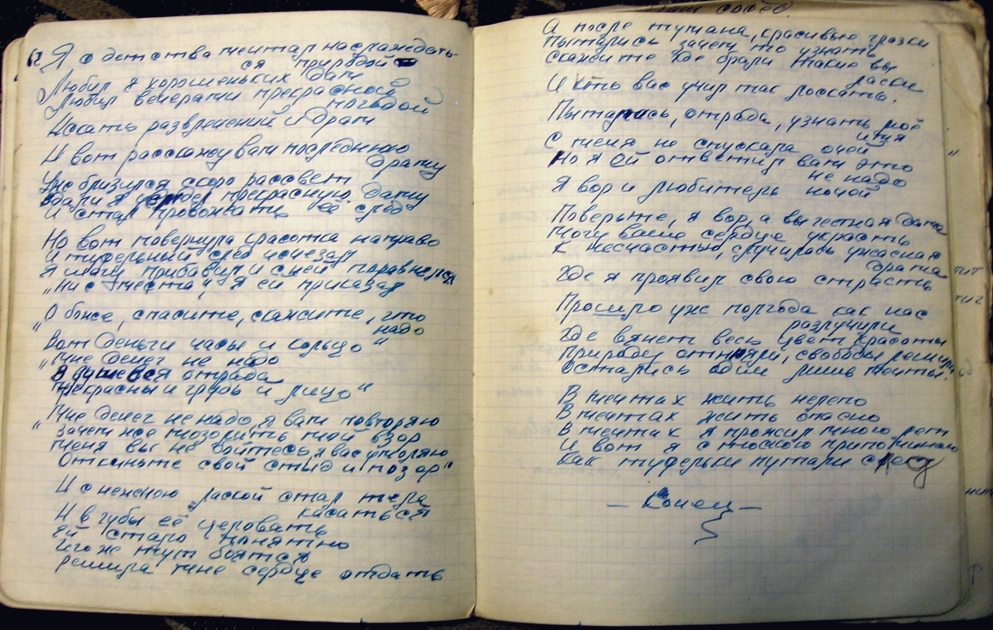 Я с детства мечтал наслаждать-
ся природой
Любил я хорошеньких дам
Любил вечерами прекрасной
погодой
Искать развлечений и драм
И вот расскажу вам последнюю
драму
Уже близился скоро рассвет
Вдали я узрел прекрасную даму
И стал провожать её след
Но вот повернула красотка направо
И туфельный след исчезал
Я шагу прибавил и с ней поравнялся
"Ни с места", я ей приказал
"О боже, спасите, скажите, что
надо
Вот деньги часы и кольцо"
"Мне денег не надо
В душе вся отрада
Прекрасны и грудь и лицо"
"Мне денег не надо, я вам повторяю
Зачем же мозолить мой взор
Меня вы не бойтесь, я вас умоляю
Откиньте свой стыд и позор"
И с нежною лаской стал тела
касаться
И в губы её целовать
Ей стало понятно
Чего ж тут боятся
Решила мне сердце отдать
Мой сосед
А после тумана, красивые глазки
Пытались зачем то узнать
Скажите где брали такие вы
ласки
И кто вас учил так ласкать.
Пыталась, отрада, узнать моё
имя
С меня не спускала очей
Но я ей ответил вам это
не надо
Я вор и любитель ночей
Поверьте, я вор, а вы честная дама
Могу ваше сердце украсть
К несчастью, случилась ужасная
драма
Где я проявил свою страсть
Прошло уж полгода как нас
разлучили
Где вянет весь цвет красоты
Природу отняли, свободы лишили
Остались одни лишь мечты.
В мечтах жить нелепо
В мечтах жить опасно
В мечтах я прожил много лет
И вот я с тоскою припоминаю
Как туфельки путали след
— Конец —